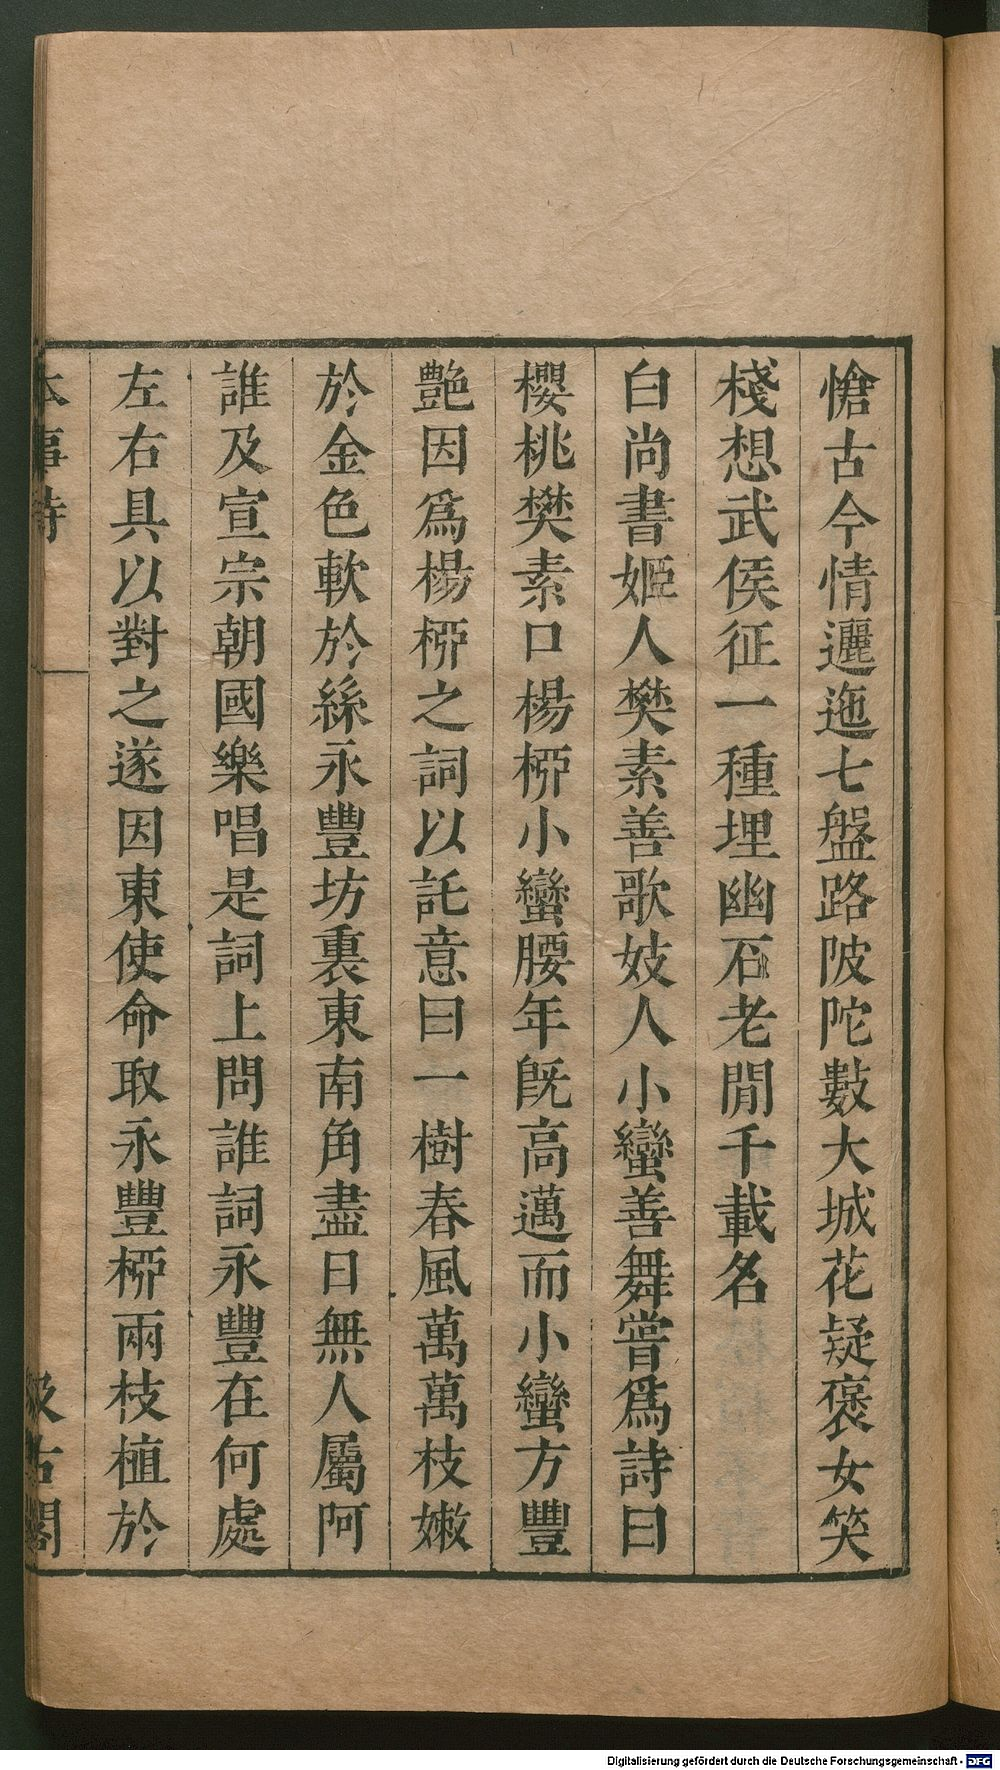 愴古今情邐迤七盤路陂陀數大城花疑褒女笑
棧想武侯征一種埋幽石老閒千載名
白尚書姬人樊素善歌妓人小蠻善舞嘗爲詩曰
櫻桃樊素口楊桺小蠻腰年旣高邁而小蠻方豐
艷因爲楊桺之詞以託意曰一樹春風萬萬枝嫩
於金色軟於絲永豐坊裏東南角盡日無人屬阿
誰及宣宗朝國樂唱是詞上問誰詞永豐在何處
左右具以對之遂因東使命取永豐桺兩枝植於
本事詩
汲古閣
Digitalisierung gefördert durch die Deutsche Forschungsgemeinschaft - DFG